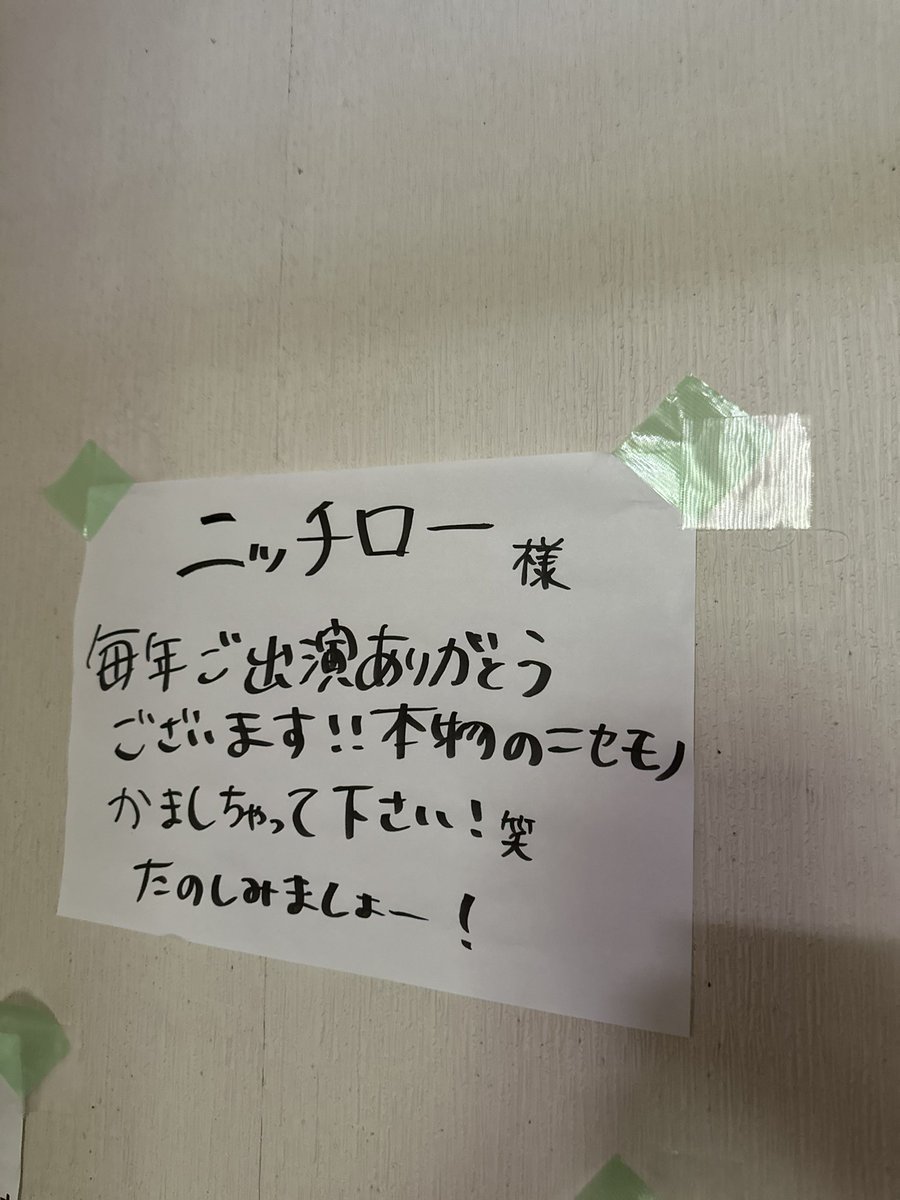 ニッチロー様
毎年ご出演ありがとう
ございます!!本物のニセモノ
かましちゃって下さい!笑
たのしみましょー!